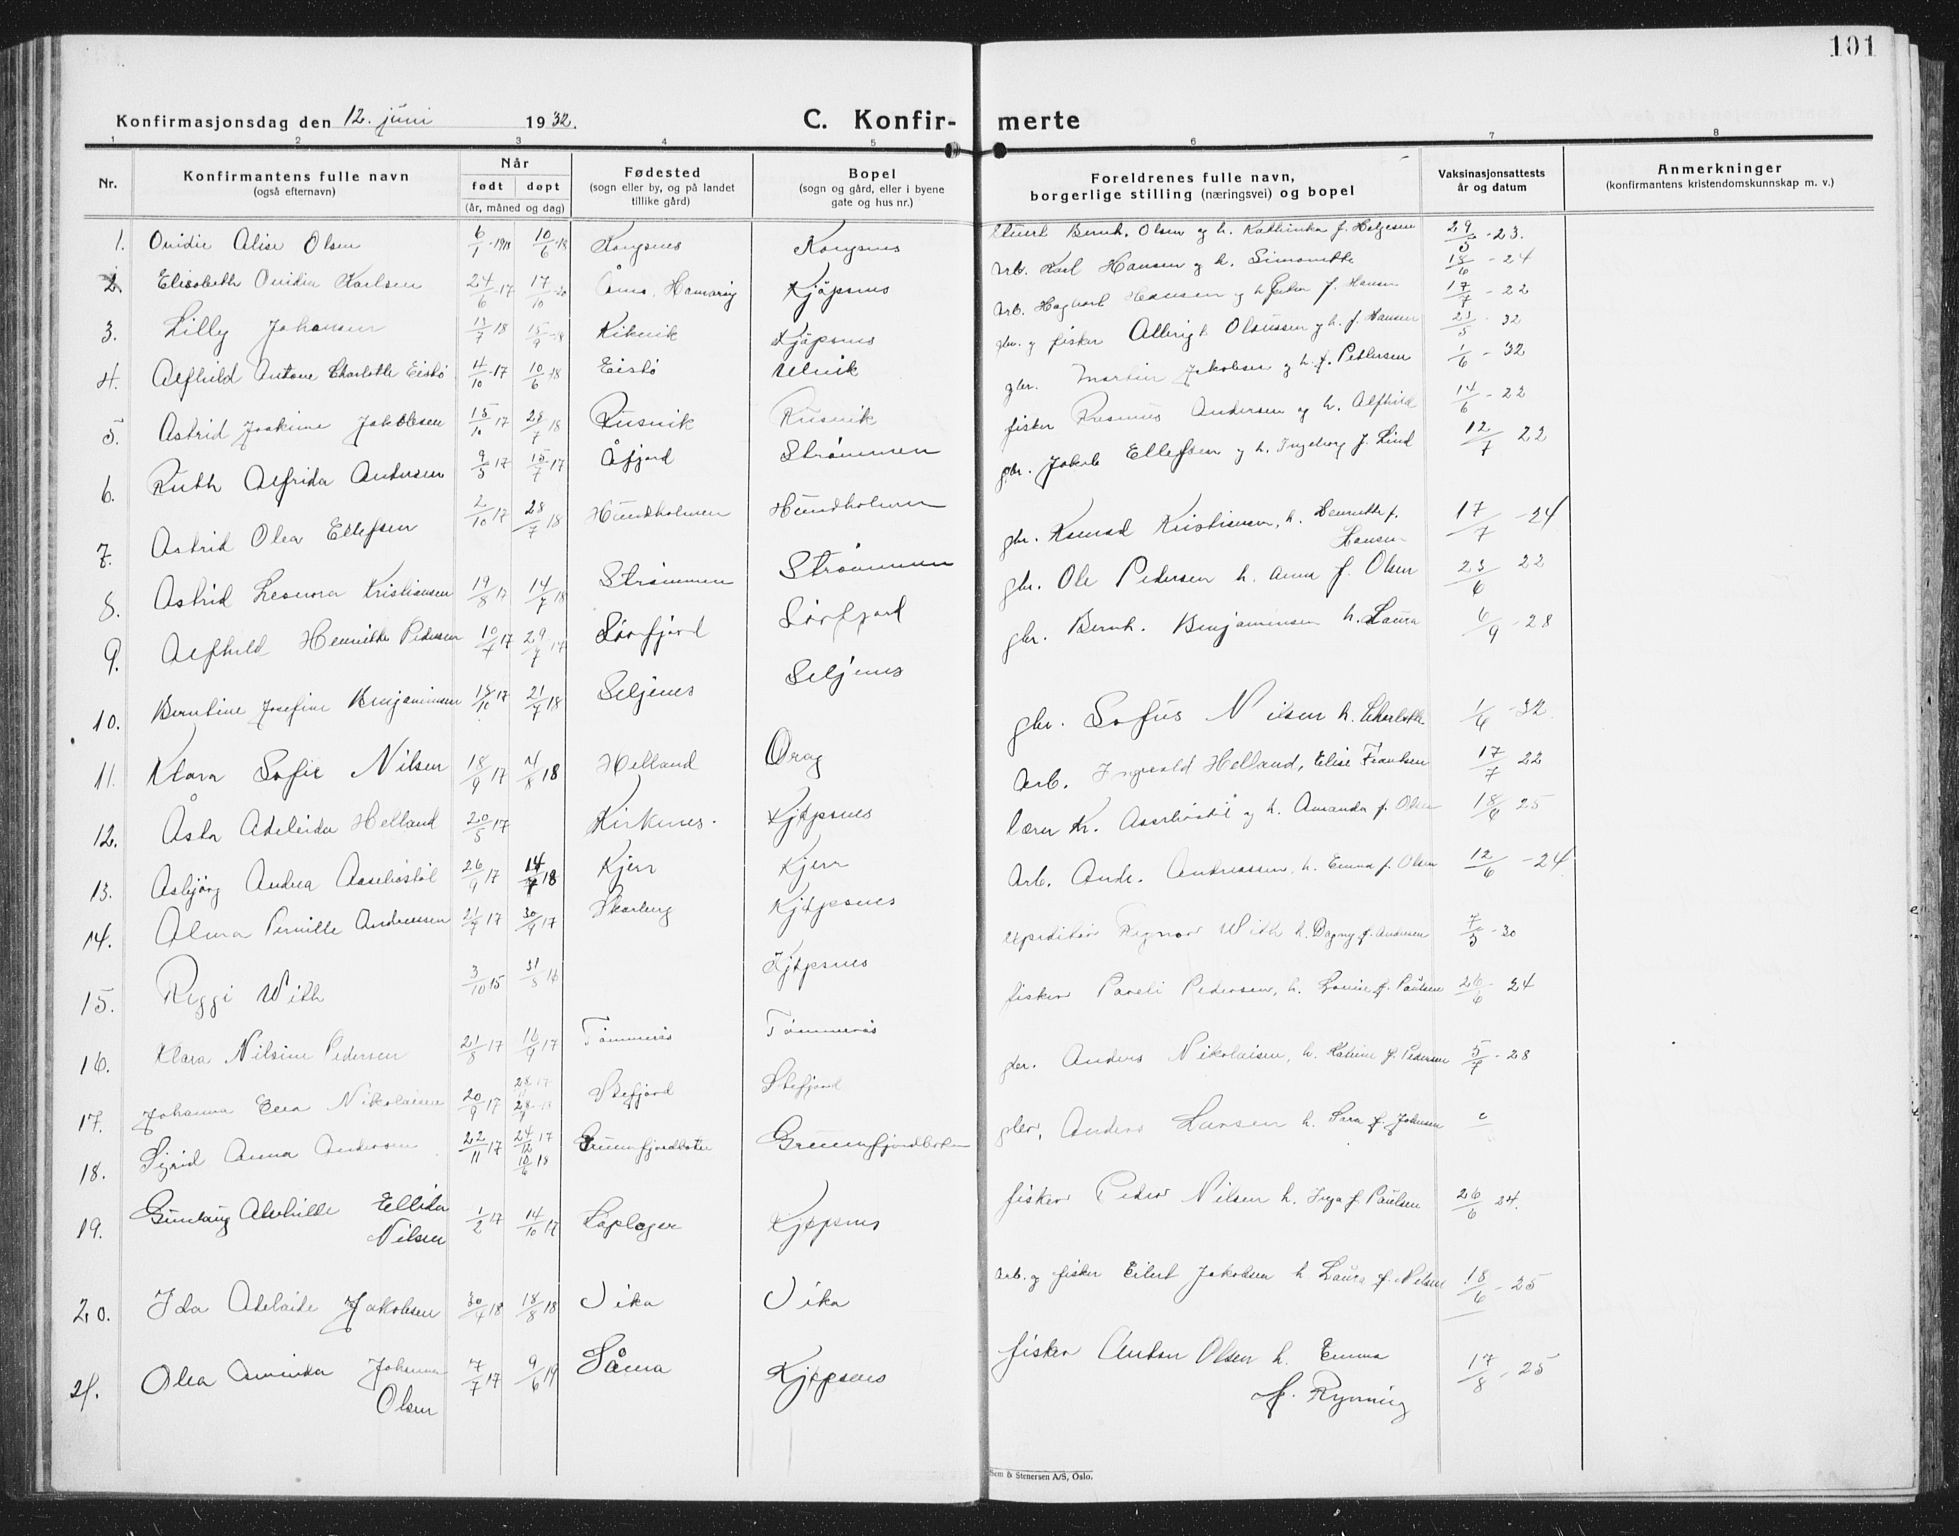 101
Konfirmasjonsdag den 12. juni 1932. C. Konfir- merte
1 2 3 4 5 6 7 8
Nr. Konfirmantens fulle navn (også efternavn) Når født døpt (år, måned og dag) Fødested (sogn eller by, og på landet tillike gård) Bopel (sogn og gård, eller i byene gate og hus nr.) Foreldrenes fulle navn, borgerlige stilling (næringsvei) og bopel Vaksinasjonsattests år og datum Anmerkninger (konfirmantens kristendomskunnskap m. v.)
1. Ovidie Alise Olsen 6/1-1918 10/6-18 Korsnes Korsnes Bernh. Olsen og h. Kathinka f. Helgesen 29/5-23.
2. Elisabeth Ovidia Karlsen 24/6-17 17/10-20 Hamarøy Kjøpsnes Arb. Karl Hansen og h. Simonette 18/6-24
3. Lilly Johansen 13/7-18 15/9-18 Kikvik Kjøpsnes Arb. Hagbart Hansen og h. f. Hansen 17/7-22
4. Alfhild Antone Charlotte Eisbø 14/10-17 10/6-18 Eisbø Ulvik gbr. og fisker Olaussen og h. f. Hansen 21/5-32
5. Astrid Joakime Jakobsen 15/10-17 28/7-18 Rusvik Rusvik gbr. Martin Jakobsen og h. f. Pettersen 1/6-32
6. Ruth Alfrida Andersen 9/5-17 15/7-17 Åfjord Strømmen fisker Rasmus Andersen og h. Alfhild 14/6-22
7. Astrid Olea Ellefsen 2/10-17 28/7-18 Hundholmen Hundholmen gbr. Jakob Ellefsen og h. Ingeborg f. Lind 12/7 22
8. Astrid Leonora Kristiansen 19/8-17 14/7-18 Strømmen Strømmen gbr. Konrad Kristiansen, h. Henrette f. Hansen 17/7-24
9. Alfhild Henritte Pedersen 10/7-17 29/7-17 Sørfjord Sørfjord gbr. Ole Pedersen h. Anna f. Olsen 23/6 22
10. Berntine Josefine Benjaminsen 18/10-17 21/7-18 Seljenes Seljenes gbr. Bernh. Benjaminsen h. Laura 6/9-28
11. Klara Sofie Nilsen 18/9-17 4/8-18 Helland Drag gbr. Sofus Nilsen h. Charlotte 1/6-32
12. Åsta Adeleida Helland 20/5-17 Kirknes. Kjøpsnes Arb. Ingvald Helland, Elise Frantsen 17/7 22
13. Asbjørg Andrea Aasebøstøl 26/9-17 14/7-18 Kjerr Kjerr lærer Kr. Aasebøstøl og h. Amanda f. Olsen 18/6-25
14. Alma Pernille Andreassen 21/7-17 30/9-17 Skarberg Kjøpsnes Arb. Andr. Andreassen, h. Emma f. Olsen 12/6-24
15. Reggi With 3/10-15 31/8-16 Kjøpsnes ekspeditør Ragnar With h. Dagny f. Andersen 7/5-30
16. Klara Nilsine Pedersen 21/8-17 16/9-17 Tømmerås Tømmerås fisker Pareli Pedersen, h. Lovise f. Paulsen 26/6-24
17. Johanna Elea Nikolaisen 20/9-17 Stefjord Stefjord gbr. Anders Nikolaisen, h. Katrine f. Pedersen 5/7-28
18. Sigrid Anna Andersen 22/11-17 24/12-17 10/6-18 Grunnfjordbotn Grunnfjordbotn gbr. Anders Larsen h. Sara f. Johnsen
19. Gunlaug Alvhilde Ellida Nilsen 1/2-17 14/10-17 Kjøpsnes fisker Peder Nilsen h. Inga f. Paulsen 26/6 24.
20. Ida Adelaide Jakobsen 30/4-18 18/8-18 Vika Vika Arb. og fisker Eilert Jakobsen h. Laura f. Nilsen 18/6-25
21. Olea Aminda Johanna Olsen 7/7-17 9/6-19 Såma Kjøpsnes fisker Anton Olsen h. Emma f. Rynning 17/8-25
Sem & Stenersen A/S, Oslo.